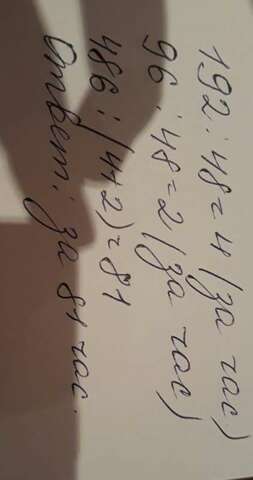 192 : 48 = 4 (за час)
96 : 48 = 2 (за час)
486 : (4+2) = 81
Ответ: за 81 час.